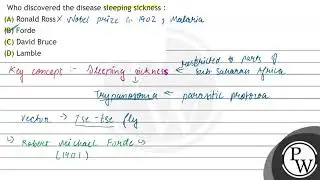 Who discovered the disease sleeping sickness :
(A) Ronald Ross × Nobel prize in 1902 ; Malaria
(B) Forde
(C) David Bruce
(D) Lamble
Key concept :- Sleeping sickness ← restricted to parts of
Sub Saharan Africa
Trypanosoma ← parasitic protozoa
vector → Tse-tse fly
↳ Robert Michael Forde ↵
(1901)
PW